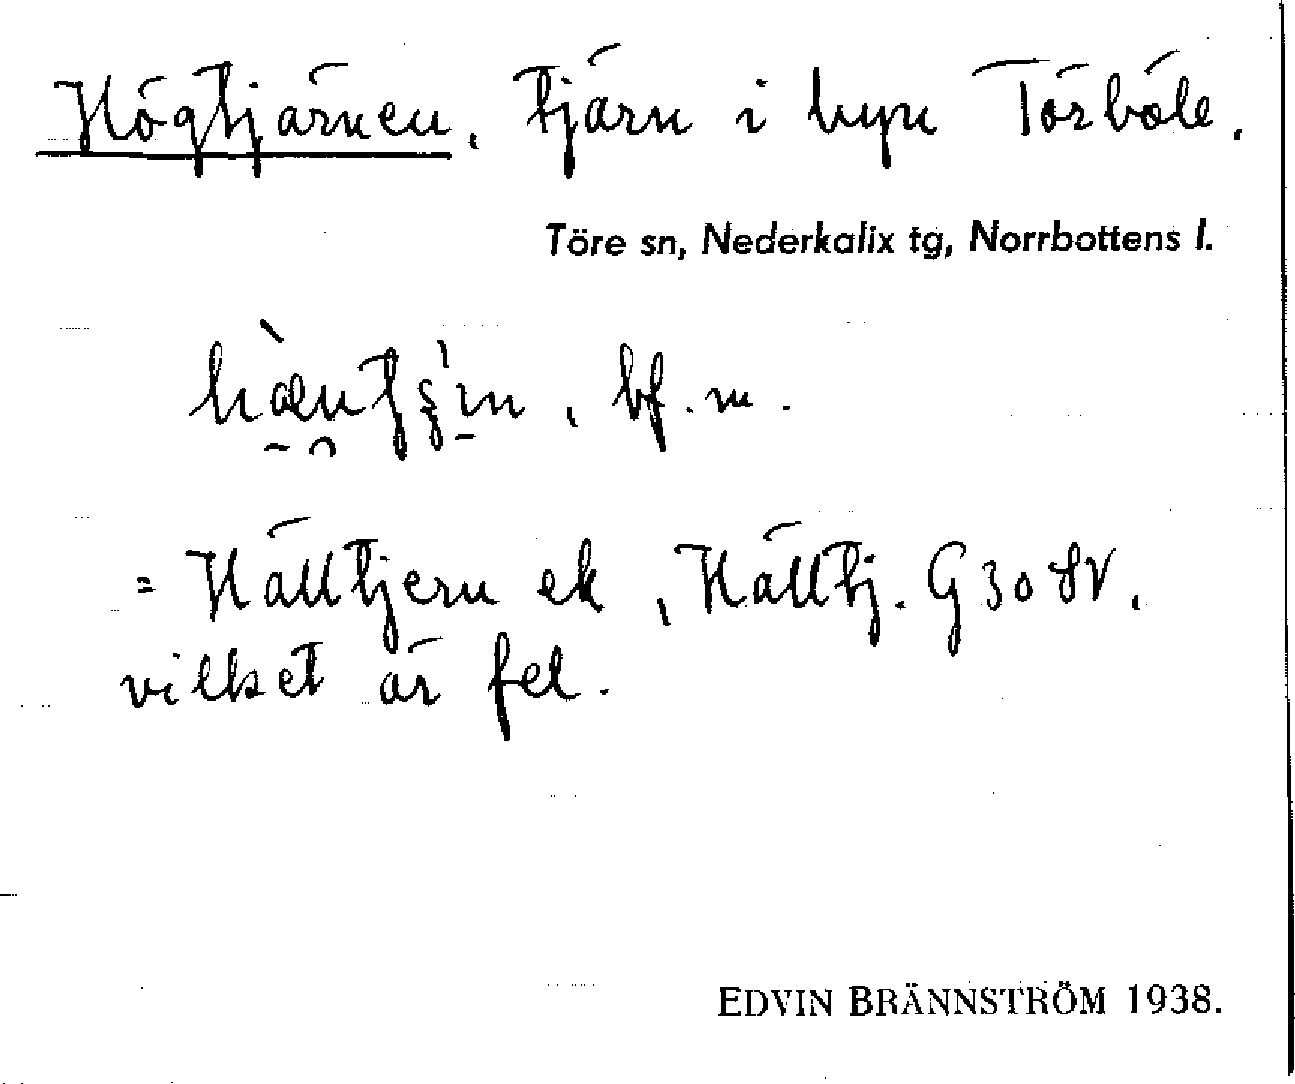 Högtjärnen, tjärn i byn Törböle.
Töre sn, Nederkalix tg, Norrbottens l.
bf. m.
= Hälltjern ek, Hälltj. G 30 SV,
vilket är fel.
EDVIN BRÄNNSTRÖM 1938.